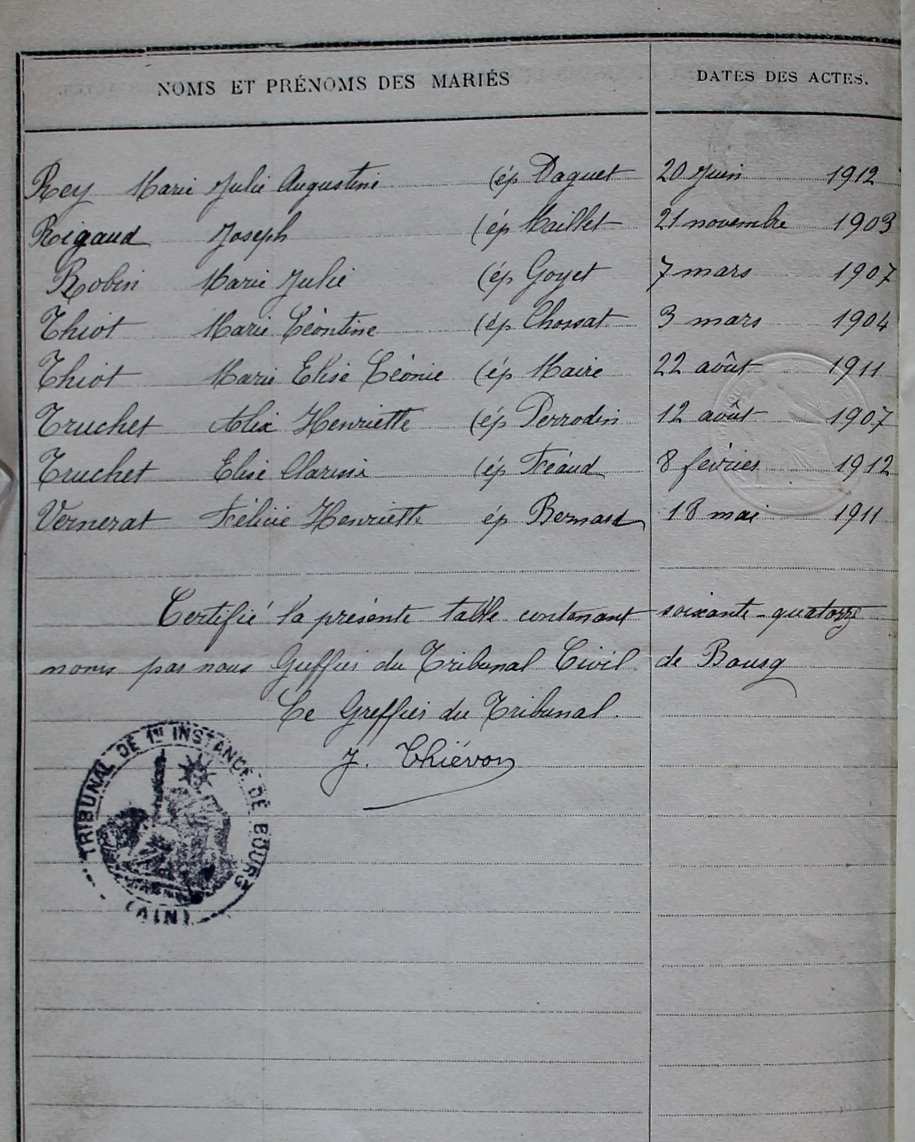 NOMS ET PRÉNOMS DES MARIÉS DATES DES ACTES.
Rey Marie Julie Augustine (ép Daguet 20 Juin 1912
Rigaud Joseph (ép Maillet 21 novembre 1903
Robin Marie Julie (ép Goyet 7 mars 1907
Thiot Marie Léontine (ép Chossat 3 mars 1904
Thiot Marie Elise Léonie (ép Maire 22 août 1911
Truchet Alix Henriette (ép Perrodin 12 août 1907
Truchet Elise Clarisse (ép Féaud 8 février 1912
Vernerat Félicie Henriette ép Bernard 18 mai 1911
Certifié la présente table contenant soixante-quatorze
noms par nous Greffier du Tribunal Civil de Bourg
Le Greffier du Tribunal.
J. Thiévon
TRIBUNAL DE 1RE INSTANCE DE BOURG
(AIN)